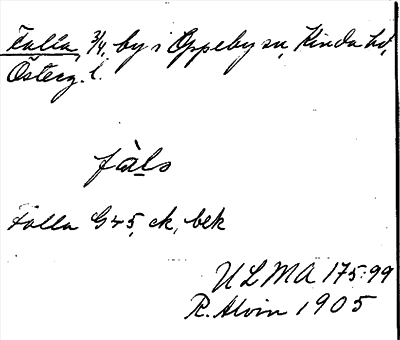 Falla, 3/4, by i Oppeby sn, Kinda hd,
Österg. l.
fàls
Falla G45, ek, bek
ULMA 175:99
R. Alvin 1905